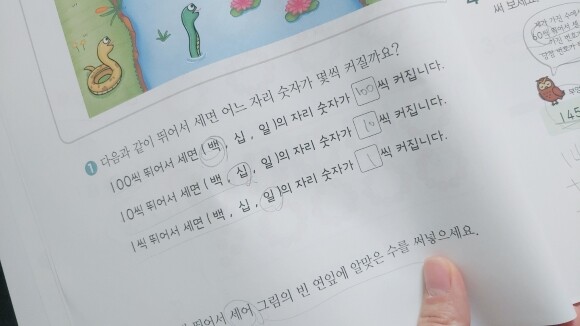 써 보세요.
제가 가진 수에서
❶ 다음과 같이 뛰어서 세면 어느 자리 숫자가 몇씩 커질까요?
100씩 뛰어서 세면 (백, 십, 일)의 자리 숫자가 100씩 커집니다.
10씩 뛰어서 세면 (백, 십, 일)의 자리 숫자가 10씩 커집니다.
1씩 뛰어서 세면 (백, 십, 일)의 자리 숫자가 1씩 커집니다.
뛰어서 세어 그림의 빈 연잎에 알맞은 수를 써넣으세요.
145